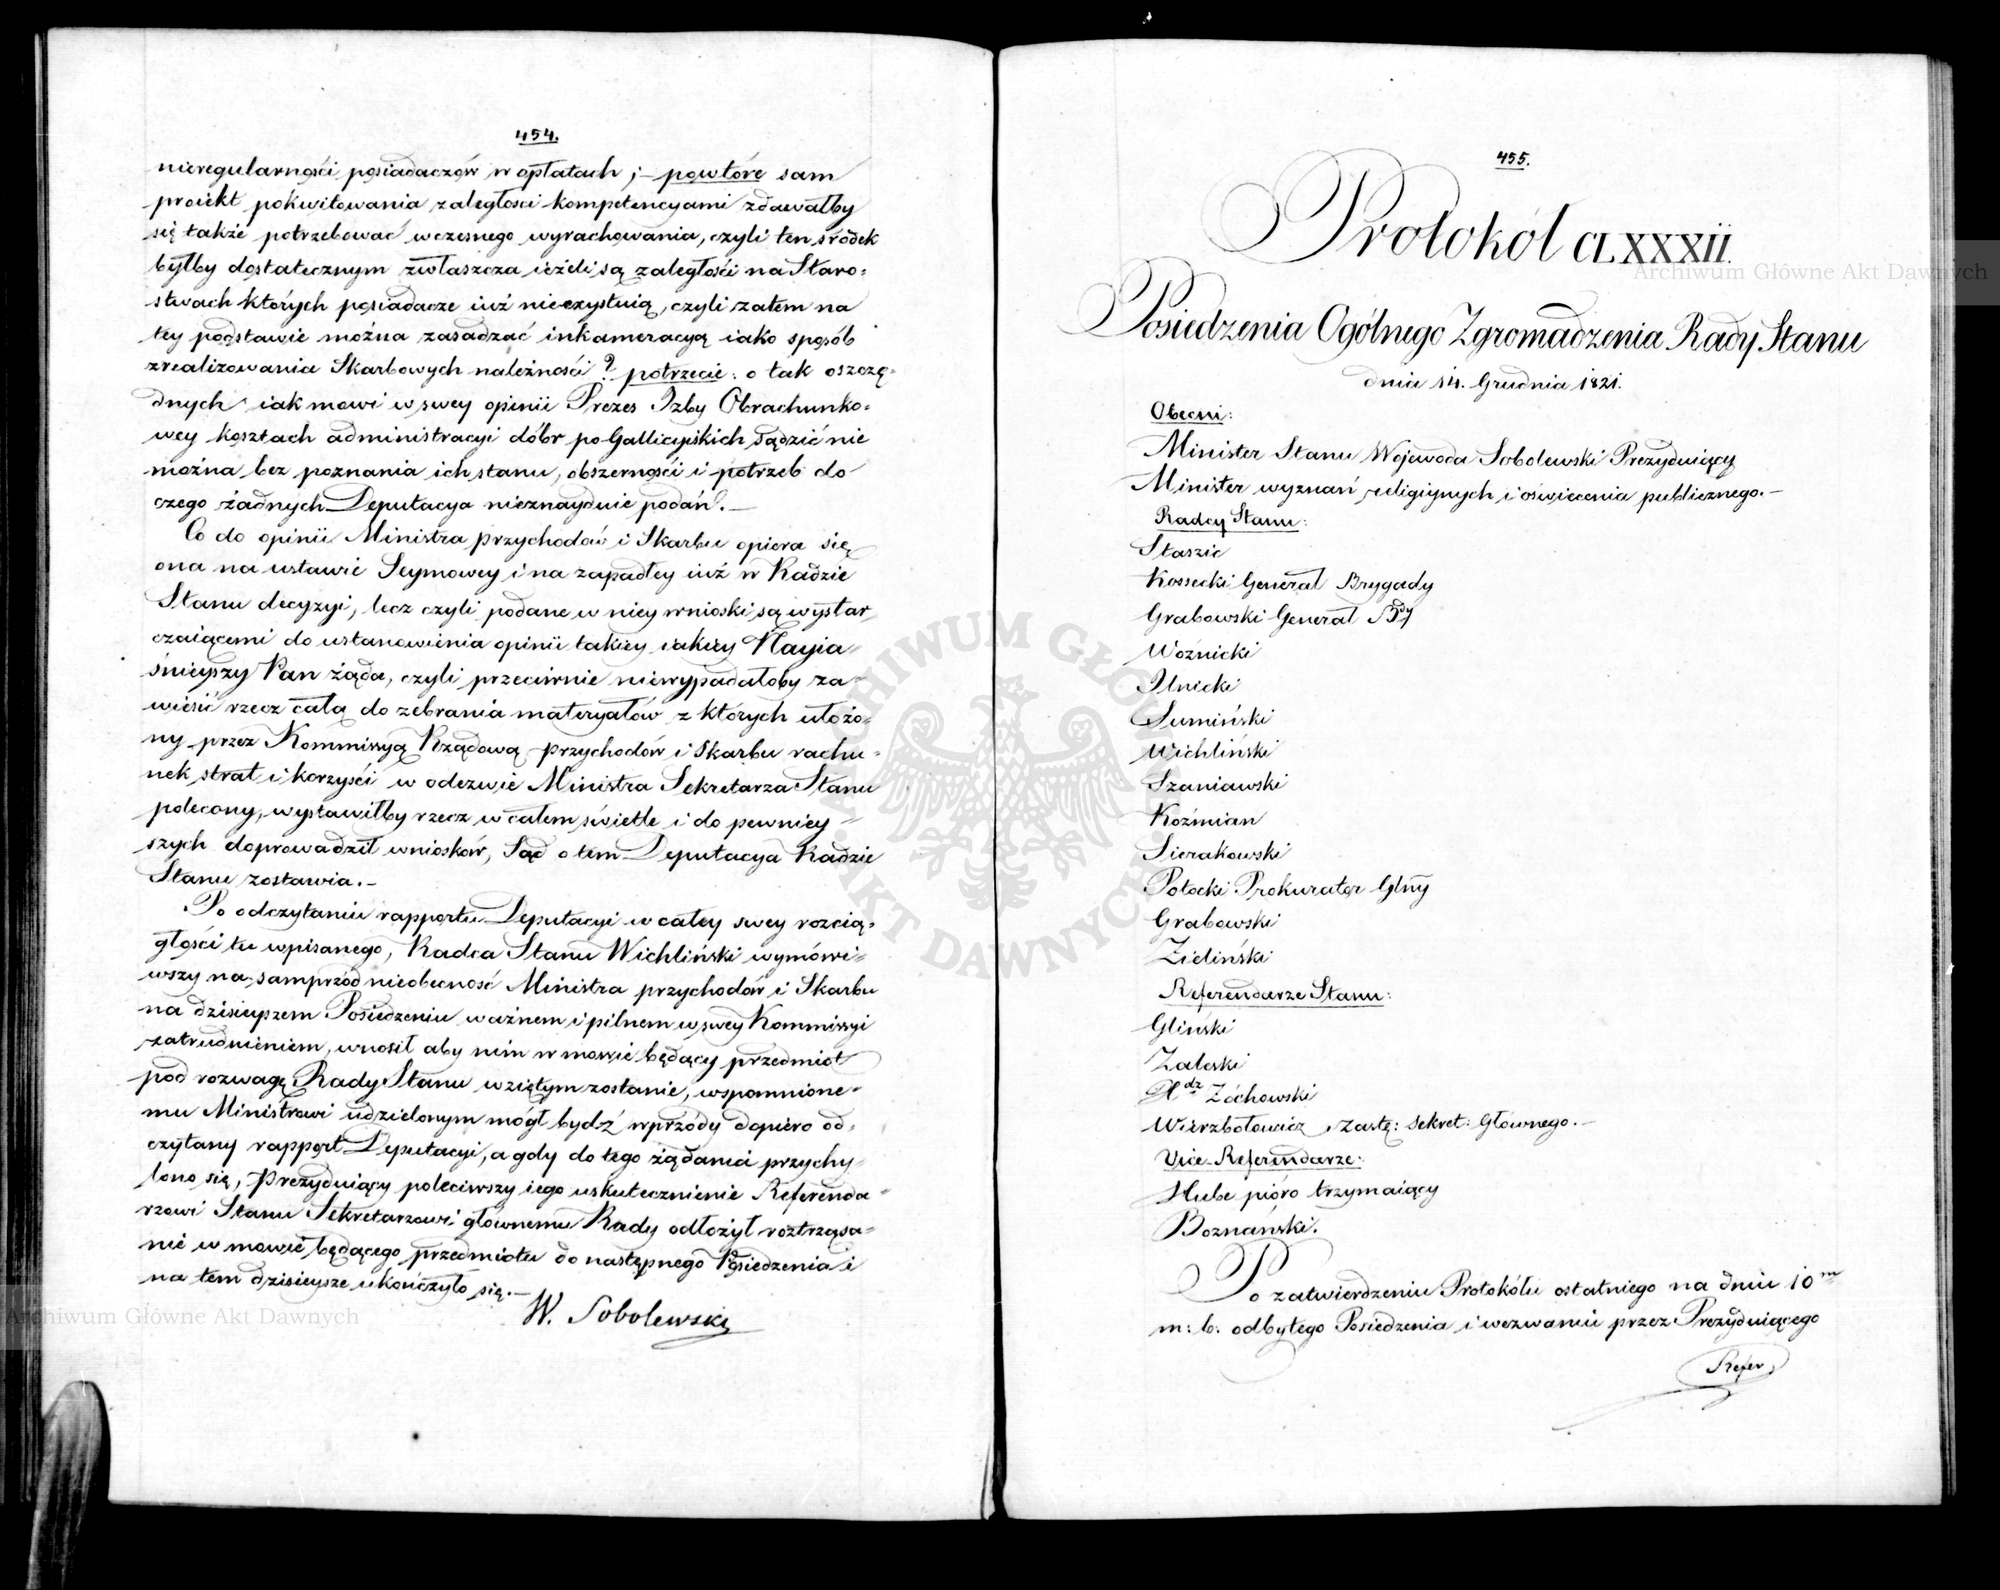 454.
nieregularności posiadaczów w opłatach; powtóre sam
proiekt pokwitowania zaległości kompetencyami zdawałby
się także potrzebować wczesnego wyrachowania, czyli ten środek
byłby dostatecznym zwłaszcza ieżeli są zaległości na Staro=
stwach których posiadacze iuż nieexystuią, czyli zatem na
tey podstawie można zasadzać inkameracyą iako sposób
zrealizowania Skarbowych należności? potrzecie: o tak oszczę=
dnych iak mowi w swey opinii Prezes Izby Obrachunko=
wey kosztach administracyi dóbr po Gallicyiskich sądzić nie
można bez poznania ich stanu, obszerności i potrzeb do
czego żadnych Deputacya nieznayduie podań.—
Co do opinii Ministra przychodów i Skarbu opiera się
ona na ustawie Seymowey i na zapadłey iuż w Radzie
Stanu decyzyi, lecz czyli podane w niey wnioski są wystar=
czaiącemi do ustanowienia opinii takiey iakiey Nayia=
śnieyszy Pan żąda, czyli przeciwnie niewypadałoby za=
wiesić rzecz całą do zebrania materyałów z których ułożo=
ny przez Kommissyą Rządową przychodów i Skarbu rachu=
nek strat i korzyści w odezwie Ministra Sekretarza Stanu
polecony, wystawiłby rzecz w całem świetle i do pewniey=
szych doprowadził wniosków, Sąd o tem Deputacya Radzie
Stanu zostawia.—
Po odczytaniu rapportu Deputacyi w całey swey rozcią=
głości tu wpisanego, Radca Stanu Wichliński wymówi=
wszy na samprzód nieobecność Ministra przychodów i Skarbu
na dzisieyszem Posiedzeniu ważnem i pilnem w swey Kommissyi
zatrudnieniem, wnosił aby nim w mowie będący przedmiot
pod rozwagę Rady Stanu wziętym zostanie, wspomnione=
mu Ministrowi udzielonym mógł bydź wprzódy dopiero od=
czytany rapport Deputacyi, a gdy do tego żądania przychy=
lono się, Prezyduiący poleciwszy iego uskutecznienie Referenda=
rzowi Stanu Sekretarzowi głównemu Rady odłożył roztrząsa=
nie w mowie będącego przedmiotu do następnego Posiedzenia i
na tem dzisieysze ukończyło się.—
W. Sobolewski
455.
Protokół CLXXXII.
Posiedzenia Ogólnego Zgromadzenia Rady Stanu
dnia 14. Grudnia 1821.
Obecni:
Minister Stanu Wojewoda Sobolewski Prezyduiący
Minister wyznań religiynych i oświecenia publicznego.—
Radcy Stanu:
Staszic
Kossecki Generał Brygady
Grabowski Generał Bdy
Woźnicki
Ilnicki
Sumiński
Wichliński
Szaniawski
Koźmian
Sierakowski
Potocki Prokurator Glny
Grabowski
Zieliński
Referendarze Stanu:
Gliński
Zaleski
Xdz Żóchowski
Wierzbołowicz Zastę: Sekret: Głownego.—
Vice-Referendarze:
Hube pióro trzymaiący
Boznański.
Po zatwierdzeniu Protokółu ostatniego na dniu 10m
m: b: odbytego Posiedzenia i wezwaniu przez Prezyduiącego
Refer
Archiwum Główne Akt Dawnych
Archiwum Główne Akt Dawnych
ARCHIWUM GŁÓWNE AKT DAWNYCH